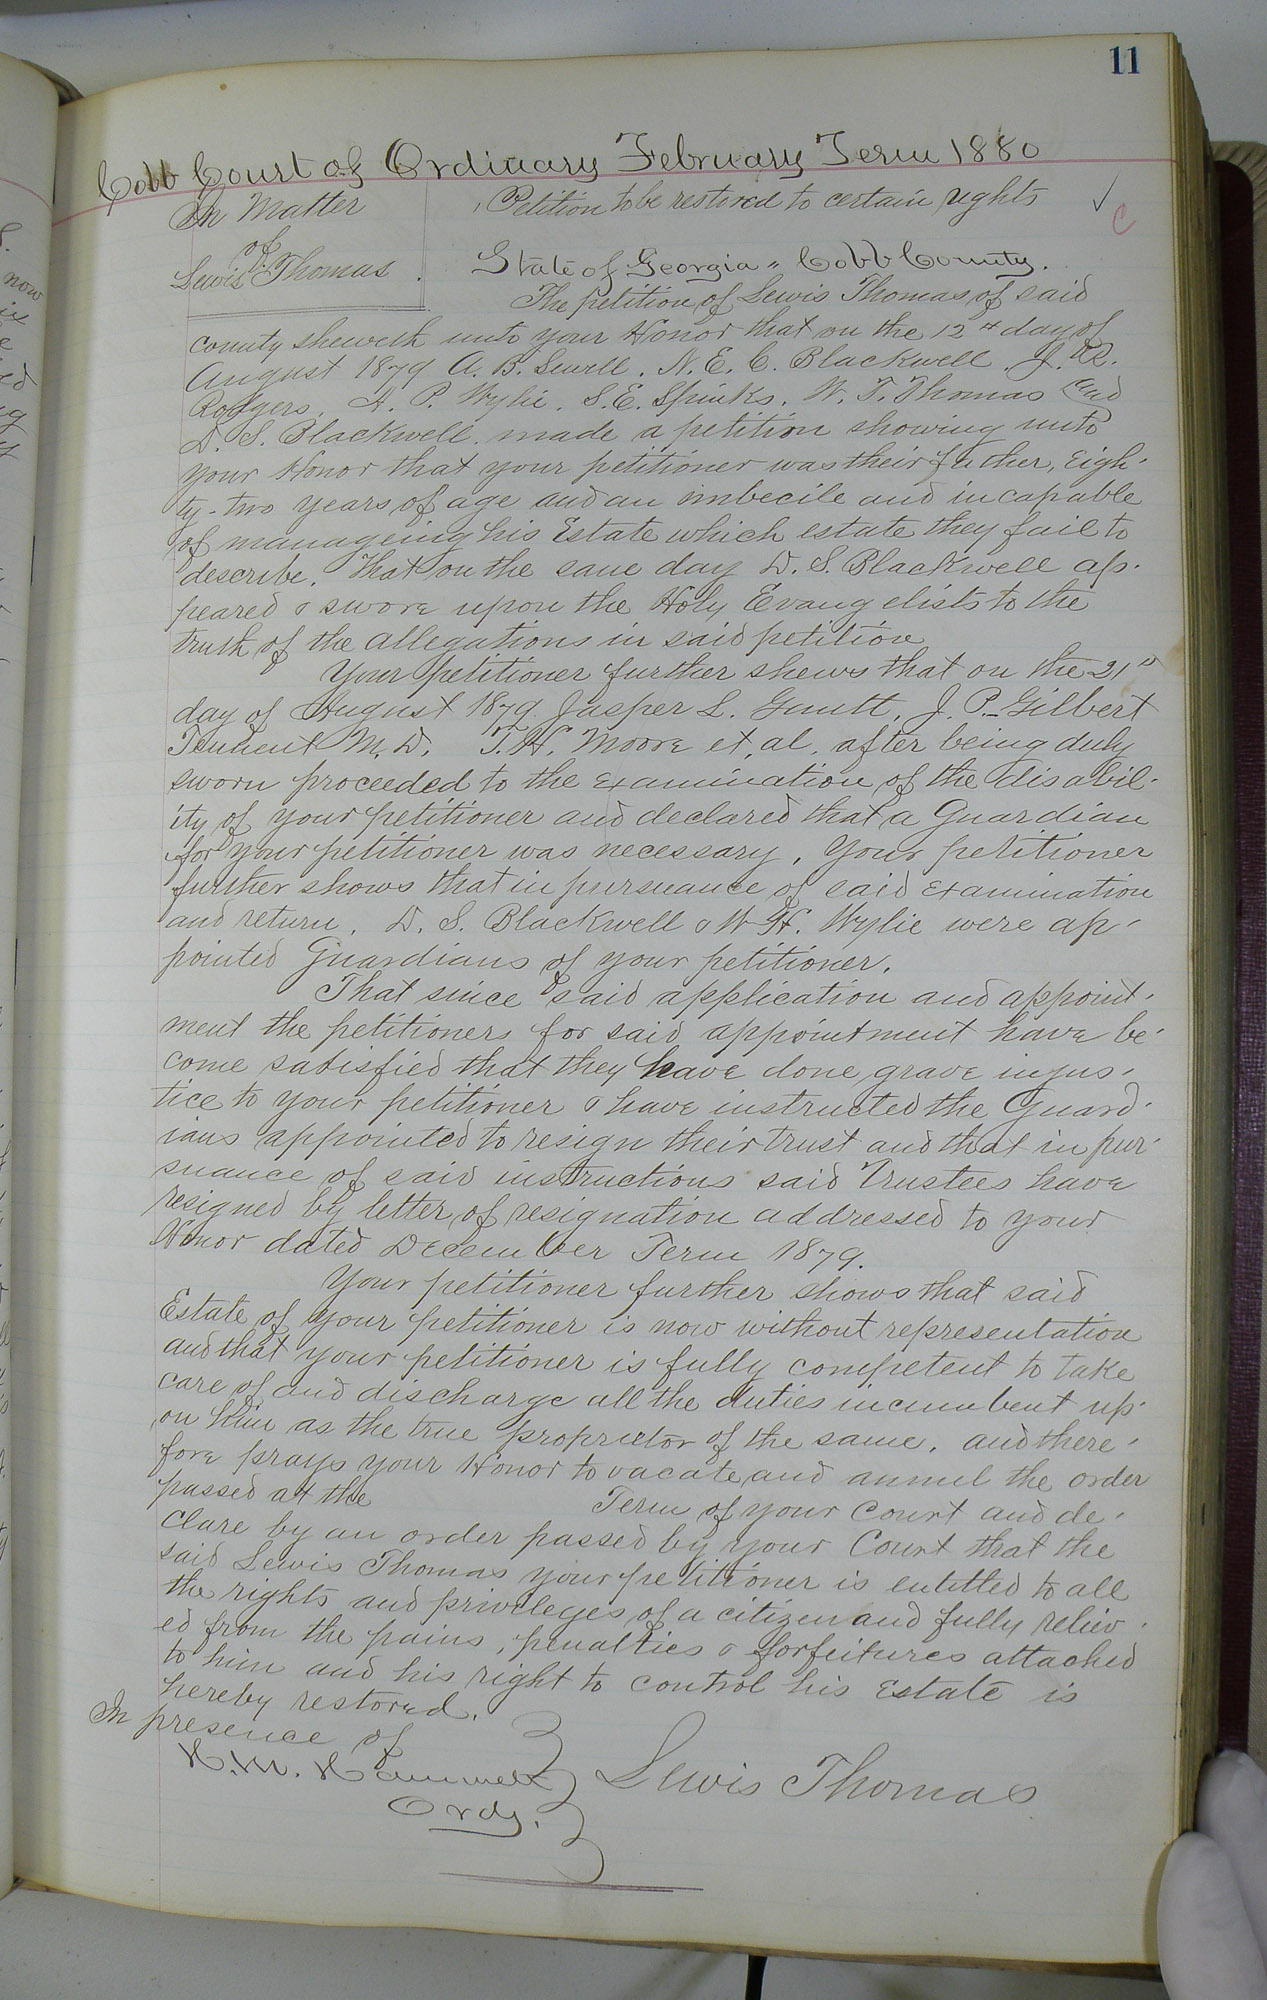 11
Cobb Court of Ordinary February Term 1880
In Matter
of
Lewis Thomas
Petition to be restored to certain rights
✓ C
State of Georgia " Cobb County.
The petition of Lewis Thomas of said
county sheweth unto your Honor that on the 12th day of
August 1879 A. B. Sewell, N. E. C. Blackwell, J. R.
Rodgers, A. P. Wylie, S. E. Spinks, W. T. Thomas and
D. S. Blackwell made a petition showing unto
your Honor that your petitioner was their father, Eigh-
ty-two years of age and an imbecile and incapable
of manageing his Estate which estate they fail to
describe. That on the same day D. S. Blackwell ap-
peared & swore upon the Holy Evangelists to the
truth of the allegations in said petition
Your petitioner further shews that on the 21st
day of August 1879 Jasper L. J. P. Gilbert
Tennent M.D. T. H. Moore et al. after being duly
sworn proceeded to the examination of the disabil-
ity of your petitioner and declared that a Guardian
for your petitioner was necessary. Your petitioner
further shows that in pursuance of said examination
and return, D. S. Blackwell & W H. Wylie were ap-
pointed Guardians of your petitioner.
That since said application and appoint-
ment the petitioners for said appointment have be-
come satisfied that they have done grave injus-
tice to your petitioner & have instructed the Guard-
ians appointed to resign their trust and that in pur-
suance of said instructions said Trustees have
resigned by letter of resignation addressed to your
Honor dated December Term 1879.
Your petitioner further shows that said
Estate of your petitioner is now without representation
and that your petitioner is fully competent to take
care of and discharge all the duties incumbent up-
on him as the true proprietor of the same, and there-
fore prays your Honor to vacate and annul the order
passed at the Term of your Court and de-
clare by an order passed by your Court that the
said Lewis Thomas your petitioner is entitled to all
the rights and privileges of a citizen and fully reliev-
ed from the pains, penalties & forfeitures attached
to him and his right to control his Estate is
hereby restored.
In presence of
H. M. Hammett
Ordy.
Lewis Thomas